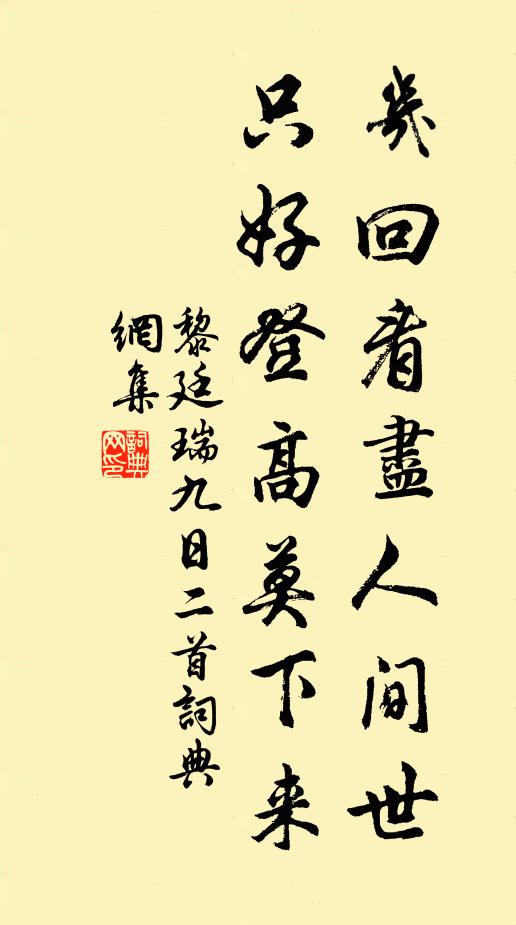 幾回看盡人间世
只好登高莫下来
黎廷瑞九日二首詞典
網集
詞典
网印